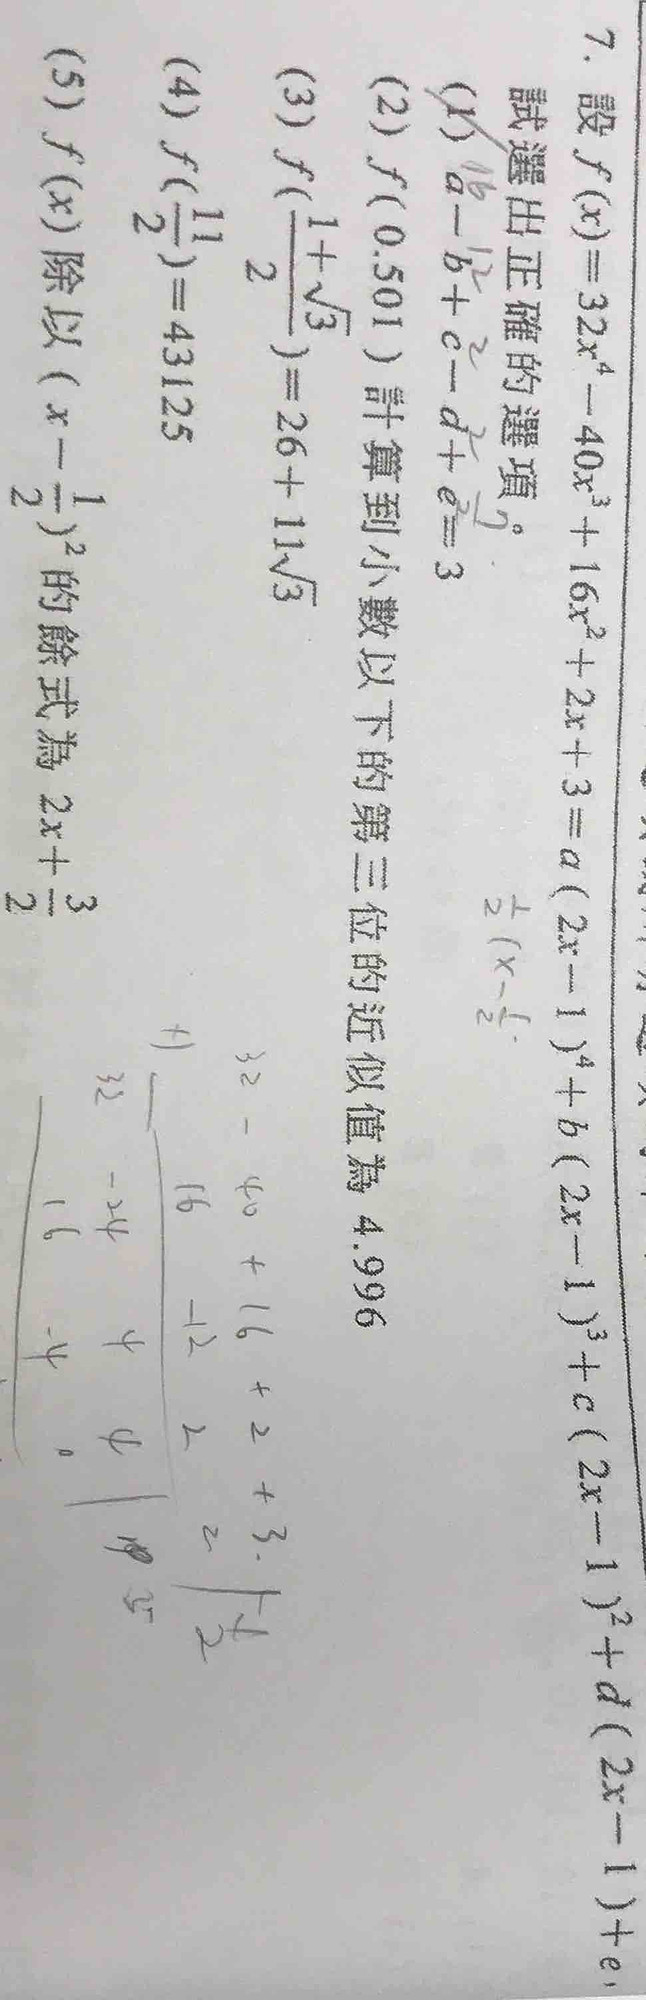 7. 設 f(x)=32x⁴-40x³+16x²+2x+3=a(2x-1)⁴+b(2x-1)³+c(2x-1)²+d(2x-1)+e,
試選出正確的選項。
(1) a-b+c-d+e=3
(2) f(0.501)計算到小數以下的第三位的近似值為 4.996
(3) f((1+√3)/2)=26+11√3
(4) f(11/2)=43125
(5) f(x)除以(x-1/2)²的餘式為 2x+3/2
1/2(x-1/2
32 - 40 + 16 + 2 + 3
+) 16 -12 2 2
32 -24 4 4 5
16 -4 0